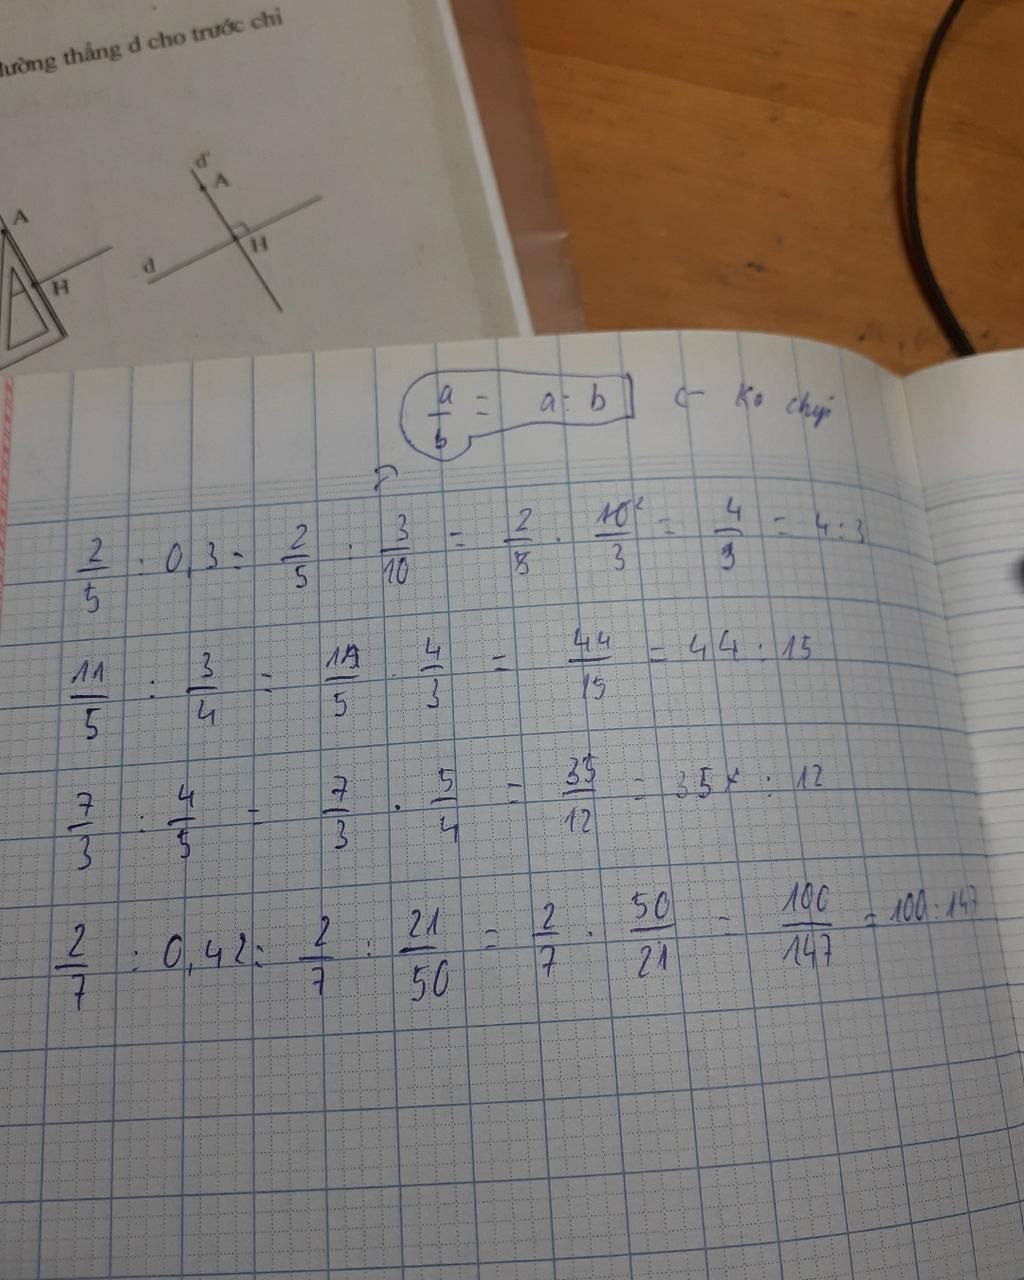 đường thẳng d cho trước chỉ
d' A
A
H
d H
a/b = a : b ← Ko chép
2/5 : 0,3 = 2/5 : 3/10 = 2/5 . 10²/3 = 4/3 = 4 : 3
11/5 : 3/4 = 11/5 . 4/3 = 44/15 = 44 : 15
7/3 : 4/5 = 7/3 . 5/4 = 35/12 = 35 : 12
2/7 : 0,42 = 2/7 : 21/50 = 2/7 . 50/21 = 100/147 = 100 : 147